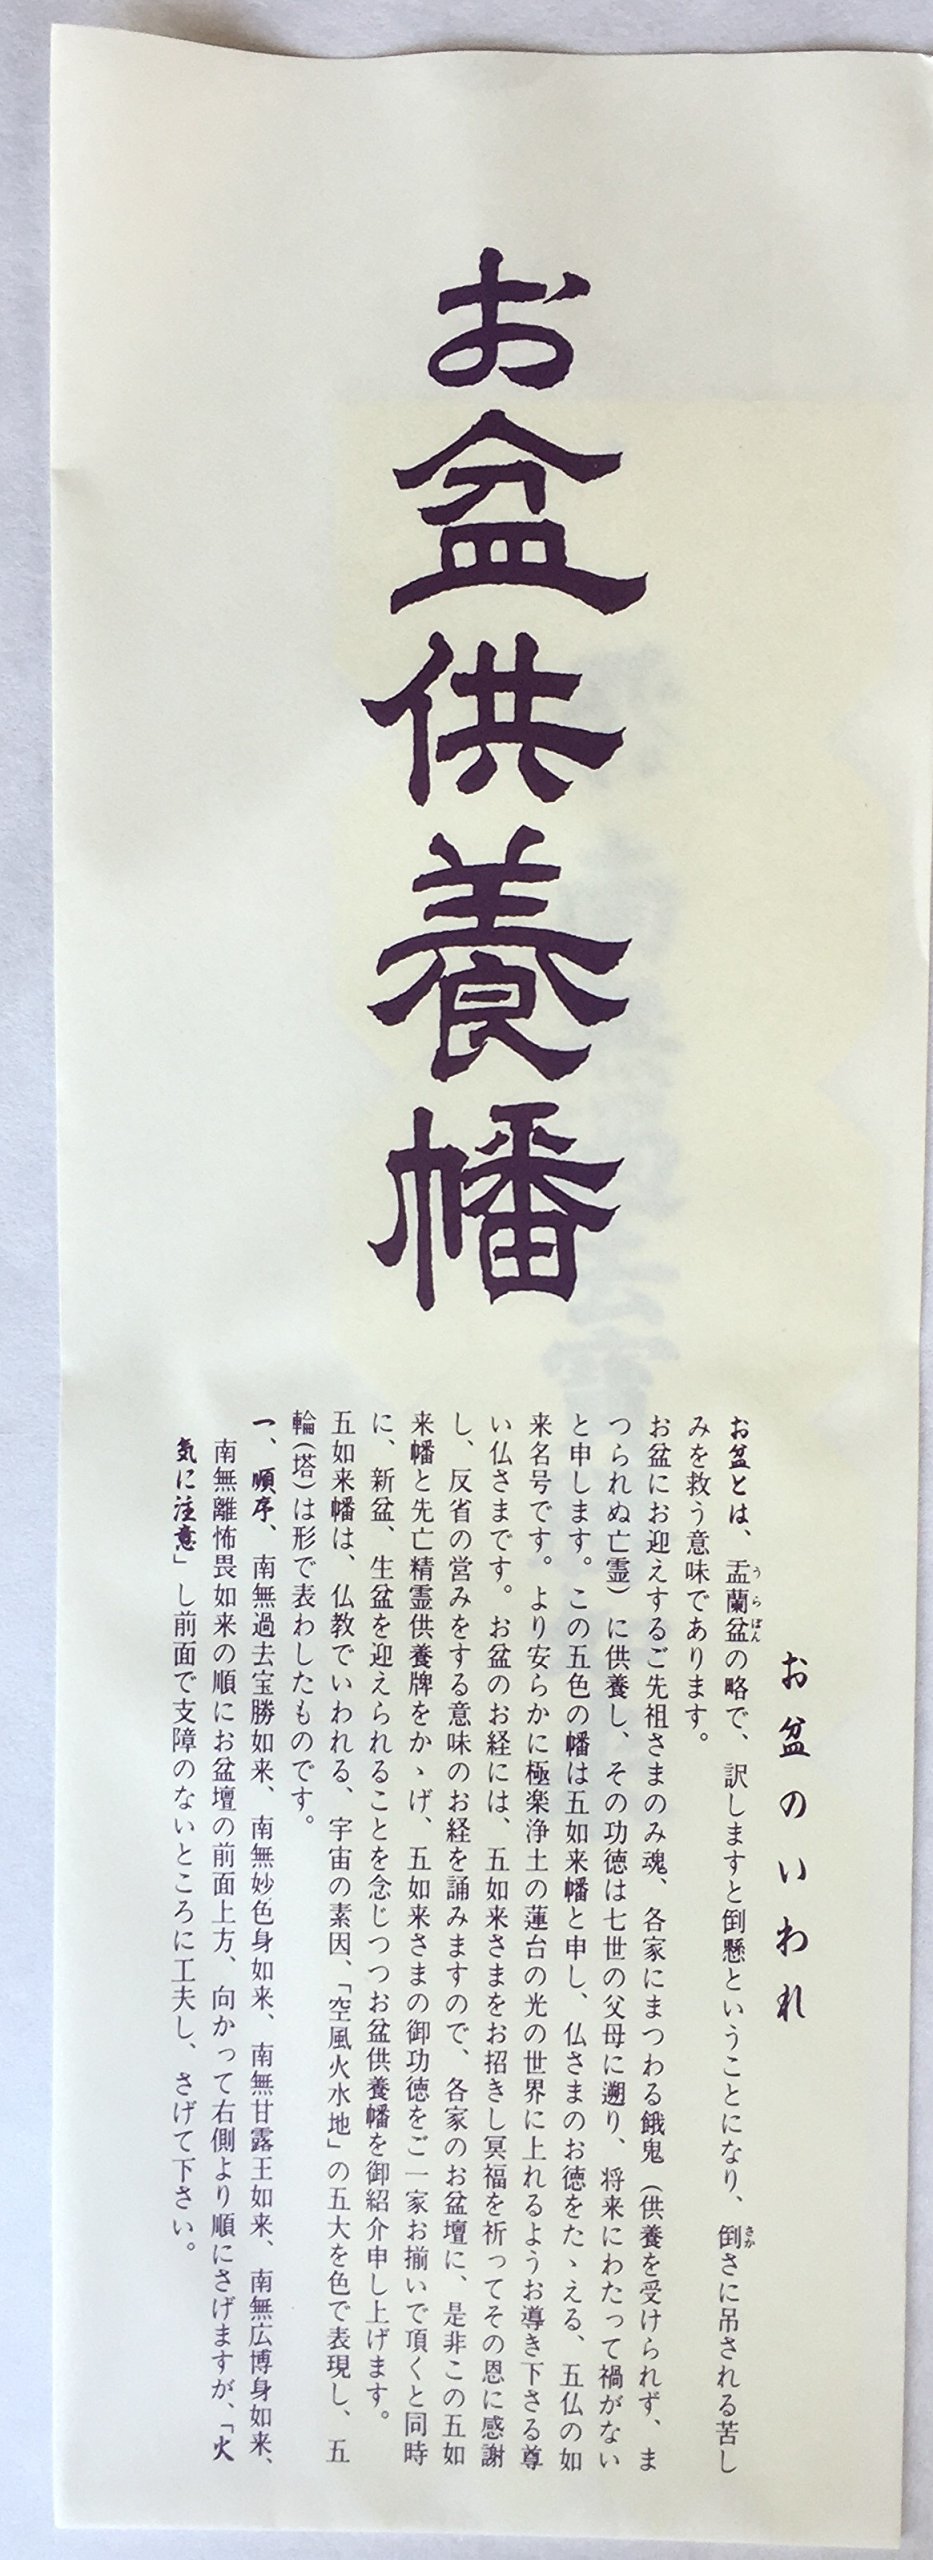 お盆供養幡
お盆のいわれ
お盆とは、盂蘭盆の略で、訳しますと倒懸ということになり、倒さに吊される苦し
みを救う意味であります。
お盆にお迎えするご先祖さまのみ魂、各家にまつわる餓鬼（供養を受けられず、ま
つられぬ亡霊）に供養し、その功徳は七世の父母に遡り、将来にわたって禍がない
と申します。この五色の幡は五如来幡と申し、仏さまのお徳をたゝえる、五仏の如
来名号です。より安らかに極楽浄土の蓮台の光の世界に上れるようお導き下さる尊
い仏さまです。お盆のお経には、五如来さまをお招きし冥福を祈ってその恩に感謝
し、反省の営みをする意味のお経を誦みますので、各家のお盆壇に、是非この五如
来幡と先亡精霊供養牌をかゝげ、五如来さまの御功徳をご一家お揃いで頂くと同時
に、新盆、生盆を迎えられることを念じつつお盆供養幡を御紹介申し上げます。
五如来幡は、仏教でいわれる、宇宙の素因、「空風火水地」の五大を色で表現し、五
輪（塔）は形で表わしたものです。
一、順序、南無過去宝勝如来、南無妙色身如来、南無甘露王如来、南無広博身如来、
南無離怖畏如来の順にお盆壇の前面上方、向かって右側より順にさげますが、「火
気に注意」し前面で支障のないところに工夫し、さげて下さい。